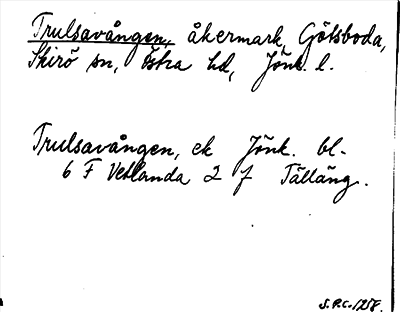 Trulsavången, åkermark, Götsboda,
Skirö sn, Östra hd, Jönk. l.
Trulsavången, ek Jönk. bl.
6 F Vetlanda 2 f Tälläng.
S.P.C. 1258.